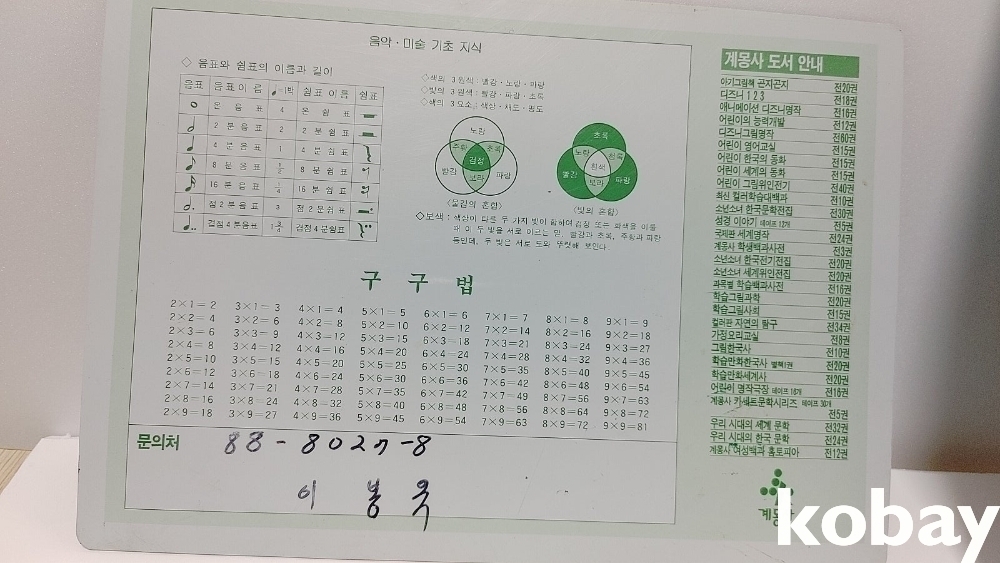 음악·미술 기초 지식
◇ 음표와 쉼표의 이름과 길이
음표 음표이름 ♩=1박 쉼표이름 쉼표
온음표 4 온쉼표
2분음표 2 2분쉼표
4분음표 1 4분쉼표
8분음표 1/2 8분쉼표
16분음표 1/4 16분쉼표
점2분음표 3 점2분쉼표
겹점4분음표 1 3/4 겹점4분쉼표
◇색의 3원색 : 빨강·노랑·파랑
◇빛의 3원색 : 빨강·파랑·초록
◇색의 3요소 : 색상·채도·명도
노랑
주황 초록
검정
빨강 보라 파랑
<물감의 혼합>
초록
노랑 청록
흰색
빨강 보라 파랑
<빛의 혼합>
◇보색 : 색상이 다른 두 가지 빛이 합하여 검정 또는 회색을 이룰
때 이 두 빛을 서로 이르는 말. 빨강과 초록, 주황과 파랑
등인데, 두 빛은 서로 도와 뚜렷해 보인다.
구구법
2×1=2 3×1=3 4×1=4 5×1=5 6×1=6 7×1=7 8×1=8 9×1=9
2×2=4 3×2=6 4×2=8 5×2=10 6×2=12 7×2=14 8×2=16 9×2=18
2×3=6 3×3=9 4×3=12 5×3=15 6×3=18 7×3=21 8×3=24 9×3=27
2×4=8 3×4=12 4×4=16 5×4=20 6×4=24 7×4=28 8×4=32 9×4=36
2×5=10 3×5=15 4×5=20 5×5=25 6×5=30 7×5=35 8×5=40 9×5=45
2×6=12 3×6=18 4×6=24 5×6=30 6×6=36 7×6=42 8×6=48 9×6=54
2×7=14 3×7=21 4×7=28 5×7=35 6×7=42 7×7=49 8×7=56 9×7=63
2×8=16 3×8=24 4×8=32 5×8=40 6×8=48 7×8=56 8×8=64 9×8=72
2×9=18 3×9=27 4×9=36 5×9=45 6×9=54 7×9=63 8×9=72 9×9=81
문의처 88-8027-8
이봉욱
계몽사 도서 안내
아기그림책 곤지곤지 전20권
디즈니 1 2 3 전18권
애니메이션 디즈니명작 전16권
어린이의 능력개발 전12권
디즈니그림명작 전60권
어린이 영어교실 전15권
어린이 한국의 동화 전15권
어린이 세계의 동화 전15권
어린이 그림위인전기 전40권
최신 컬러학습대백과 전10권
소년소녀 한국문학전집 전30권
성경 이야기 테이프 12개 전5권
국제판 세계명작 전24권
계몽사 학생백과사전 전3권
소년소녀 한국전기전집 전20권
소년소녀 세계위인전집 전20권
과목별 학습백과사전 전16권
학습그림과학 전20권
학습그림사회 전15권
컬러판 자연의 탐구 전34권
가정요리교실 전8권
그림한국사 전10권
학습만화한국사 별책1권 전20권
학습만화세계사 전20권
어린이 명작극장 테이프 16개 전16권
계몽사 카세트문학시리즈 테이프 30개
전5권
우리 시대의 세계 문학 전32권
우리 시대의 한국 문학 전24권
계몽사 여성백과 홈토피아 전12권
계몽
kobay